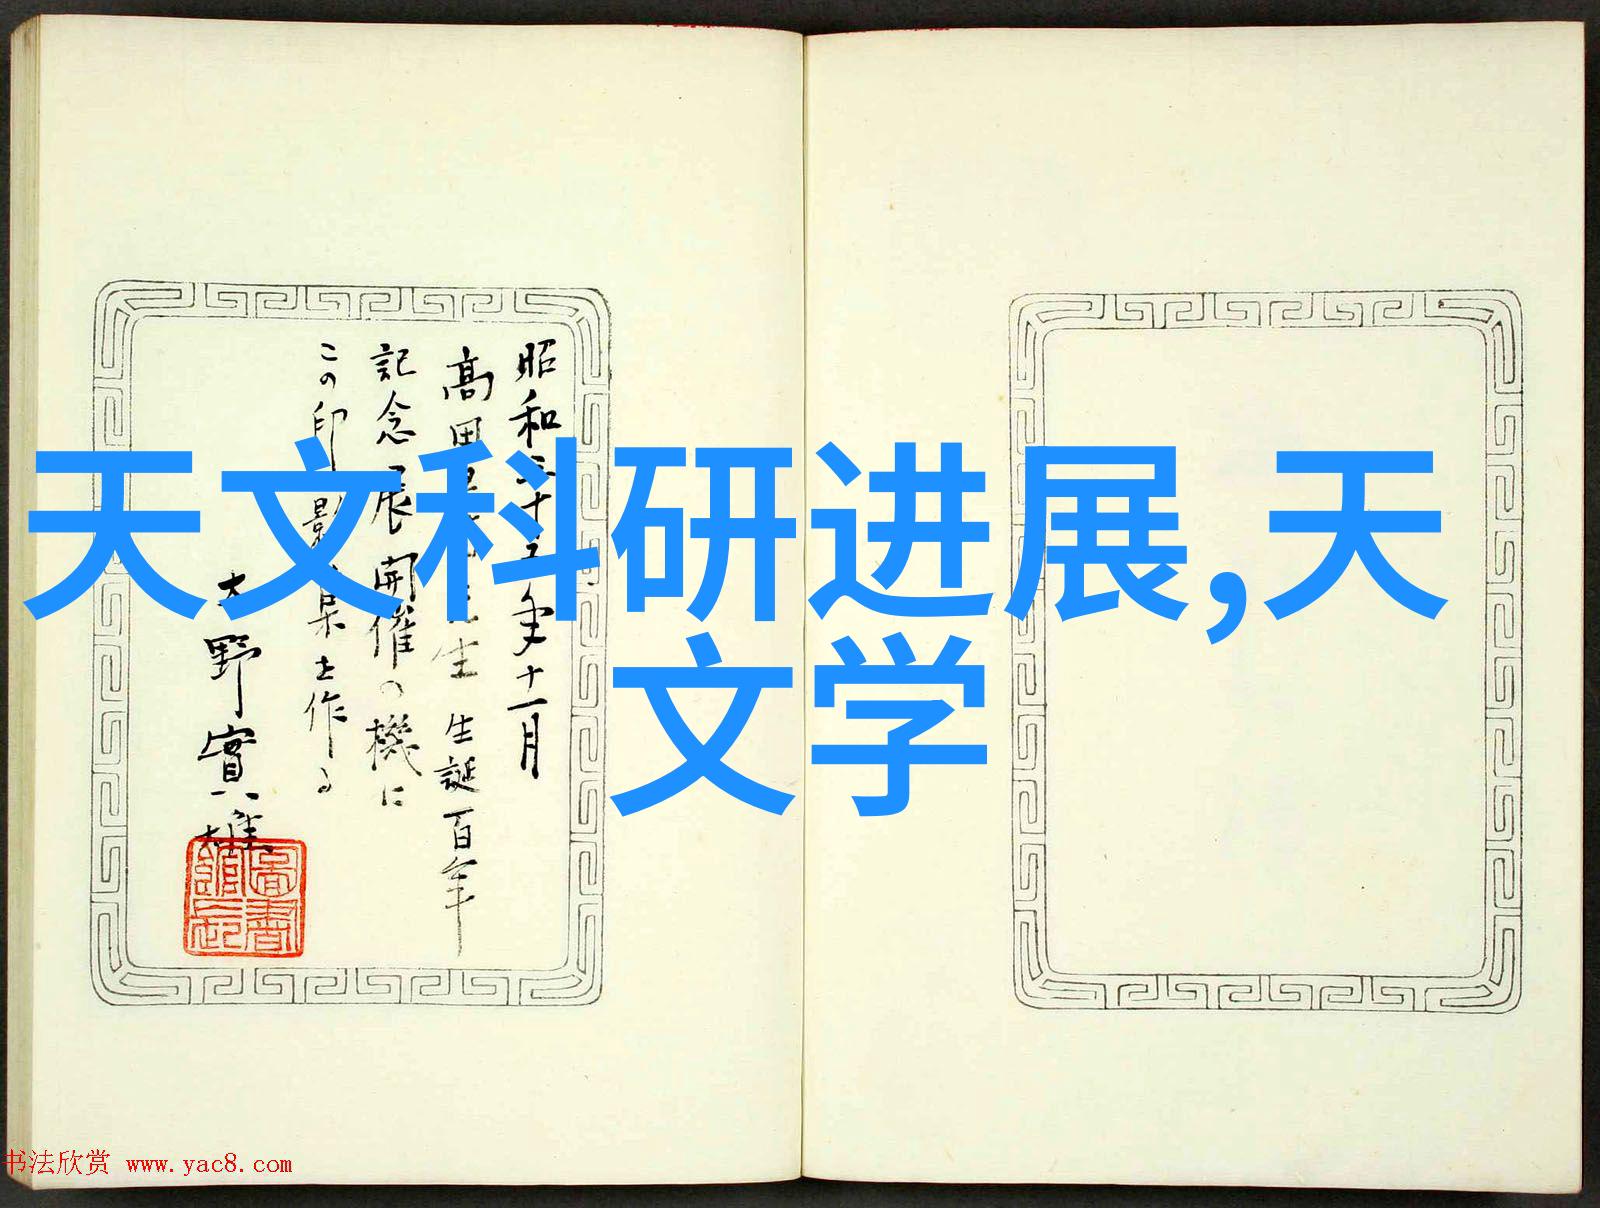 天文科研进展,天
文学
昭和三十五年十一月
高田早苗先生 生誕百年
記念展開催の機に
この印影集を作る
大野實雄
圖書館長
书法欣赏 www.yac8.com